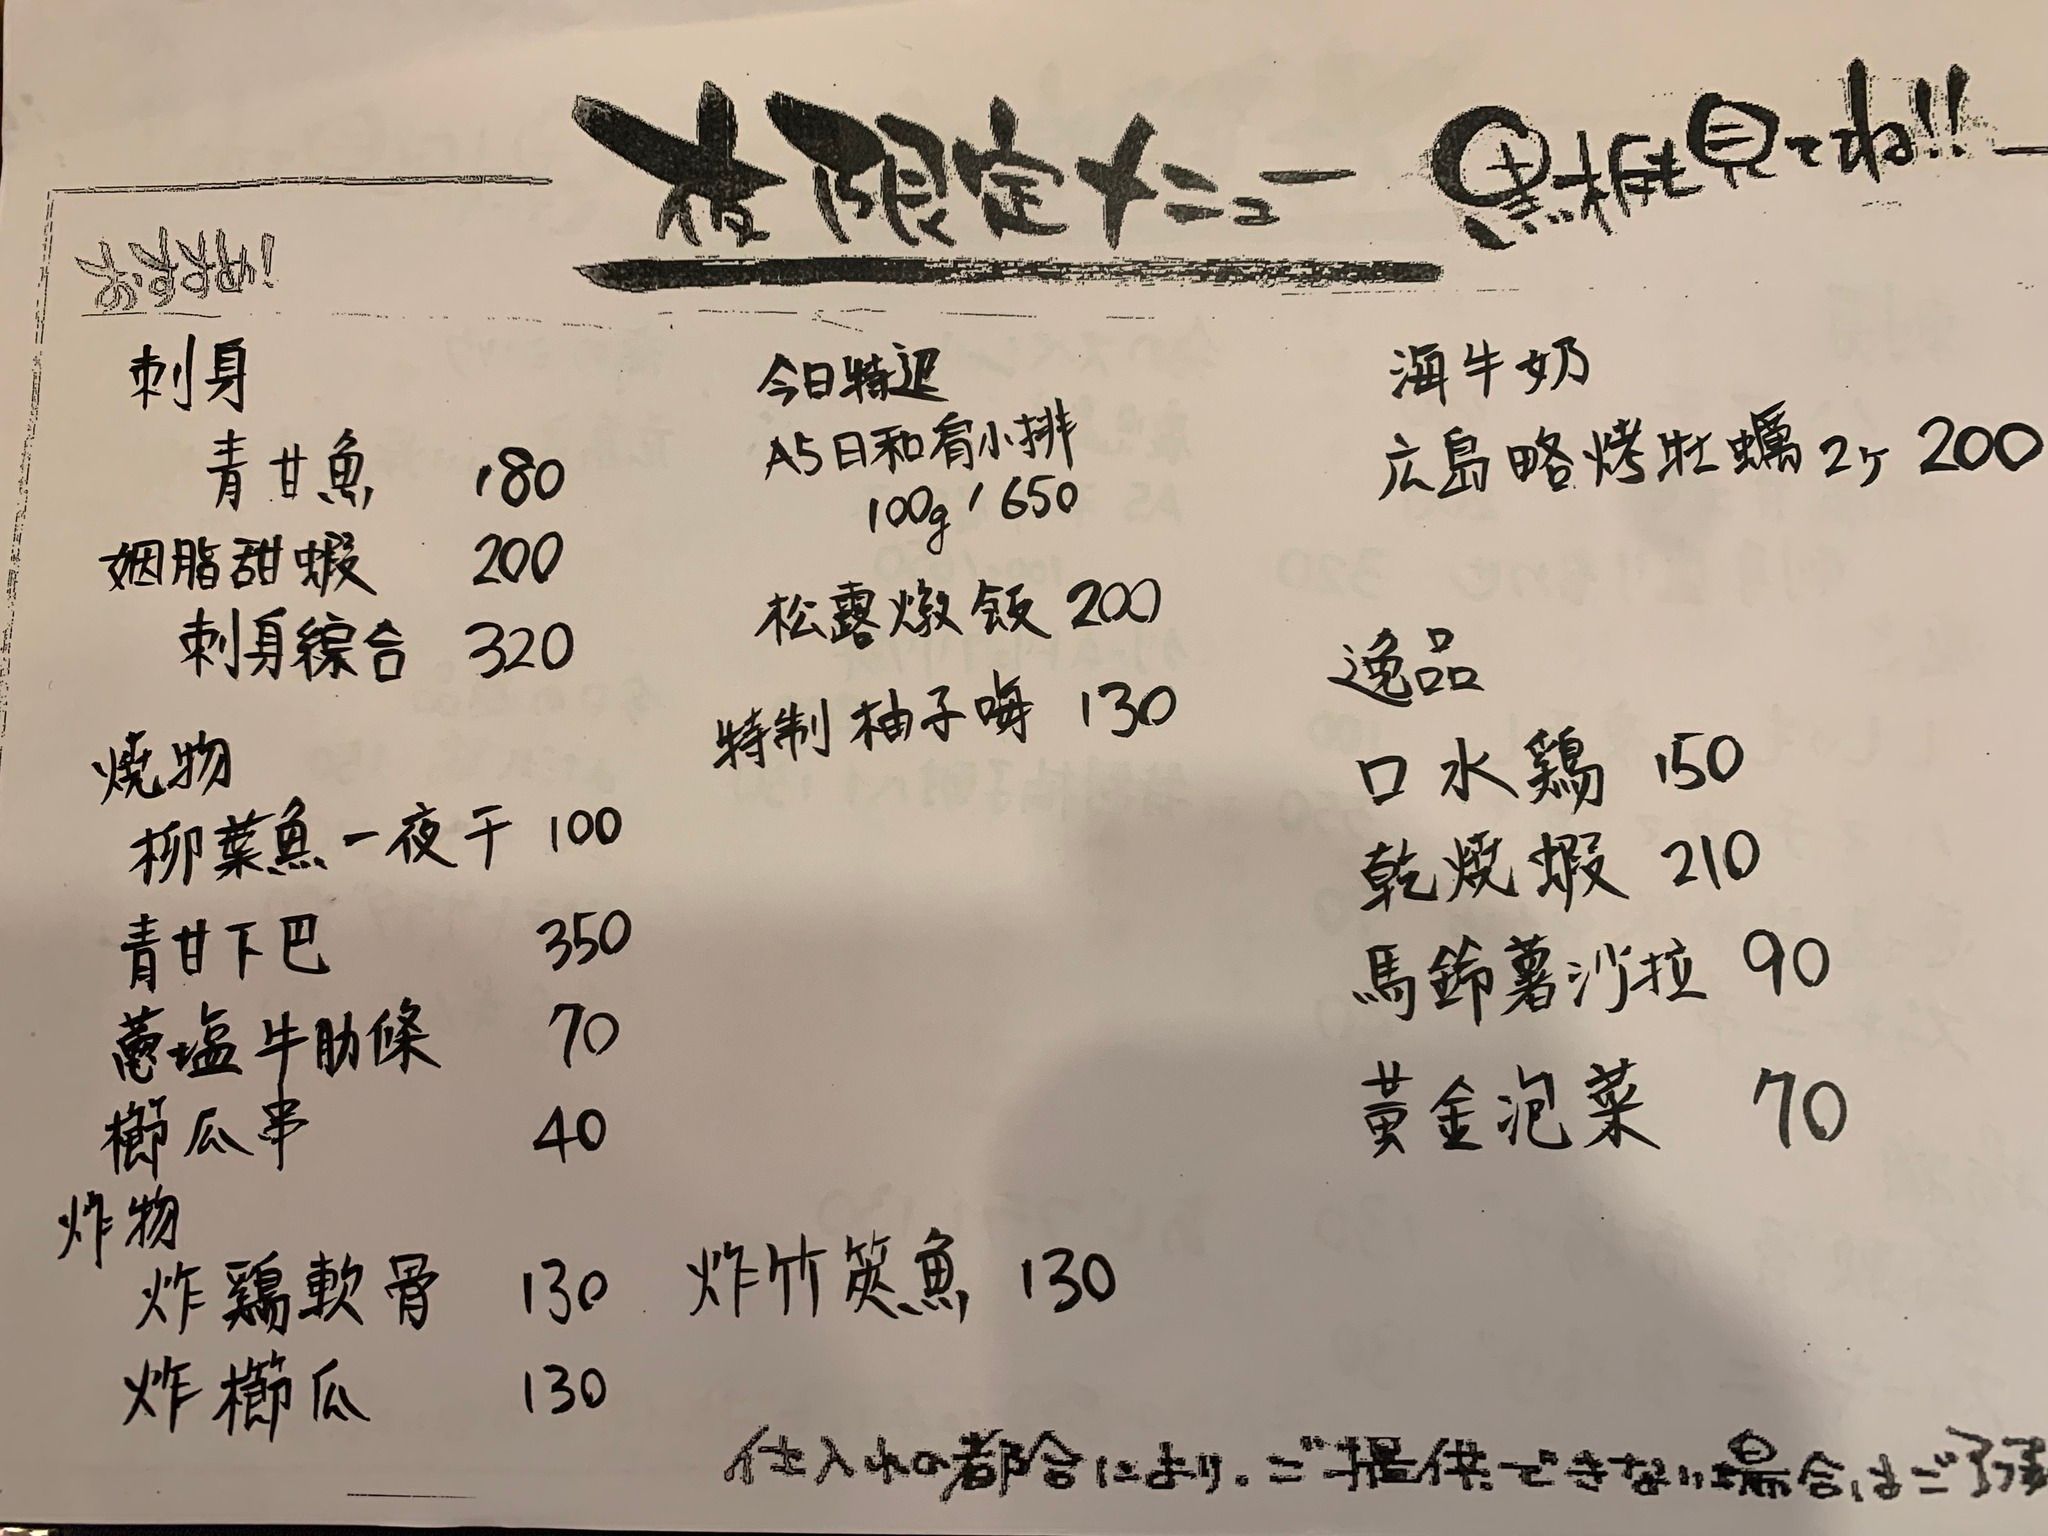 夜限定メニュー 黒板も見てね!!
おすすめ!
刺身
青甘魚 180
姻脂甜蝦 200
刺身綜合 320
燒物
柳葉魚一夜干 100
青甘下巴 350
蔥塩牛肋條 70
櫛瓜串 40
炸物
炸鶏軟骨 130
炸櫛瓜 130
今日特选
A5日和肩小排
100g / 650
松露燉飯 200
特制柚子嗨 130
炸竹筴魚 130
海牛奶
広島略烤牡蠣2ヶ 200
逸品
口水鶏 150
乾燒蝦 210
馬鈴薯沙拉 90
黃金泡菜 70
仕入れの都合により、ご提供できない場合はご了承